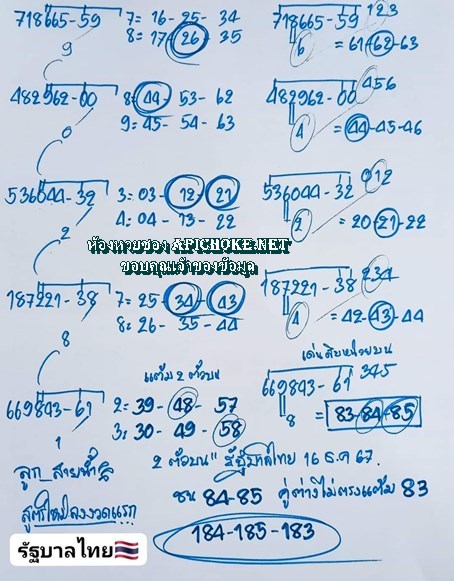 718665-59 7= 16-25-34
8= 17-26-35
9
718665-59 123
6 = 61-62-63
482962-00 8= 44-53-62
9= 45-54-63
0
482962-00 456
4 = 44-45-46
536044-32 3= 03-12-21
4= 04-13-22
2
536044-32 012
2 = 20-21-22
ห้องหวยซอง APICHOKE.NET
ขอบคุณเจ้าของข้อมูล
187221-38 7= 25-34-43
8= 26-35-44
8
187221-38 234
4 = 42-43-44
แต้ม 2 ตัวบน
669843-61 2= 39-48-57
3= 30-49-58
1
เด่นสิบหน่วยบน
669843-61 345
8 = 83-84-85
2 ตัวบน" รัฐบาลไทย 16 ธ.ค 67.
ลูก สายฟ้า
ชน 84-85 คู่ต่างไม่ตรงแต้ม 83
สูตรใหม่ลงงวดแรก
184-185-183
รัฐบาลไทย🇹🇭